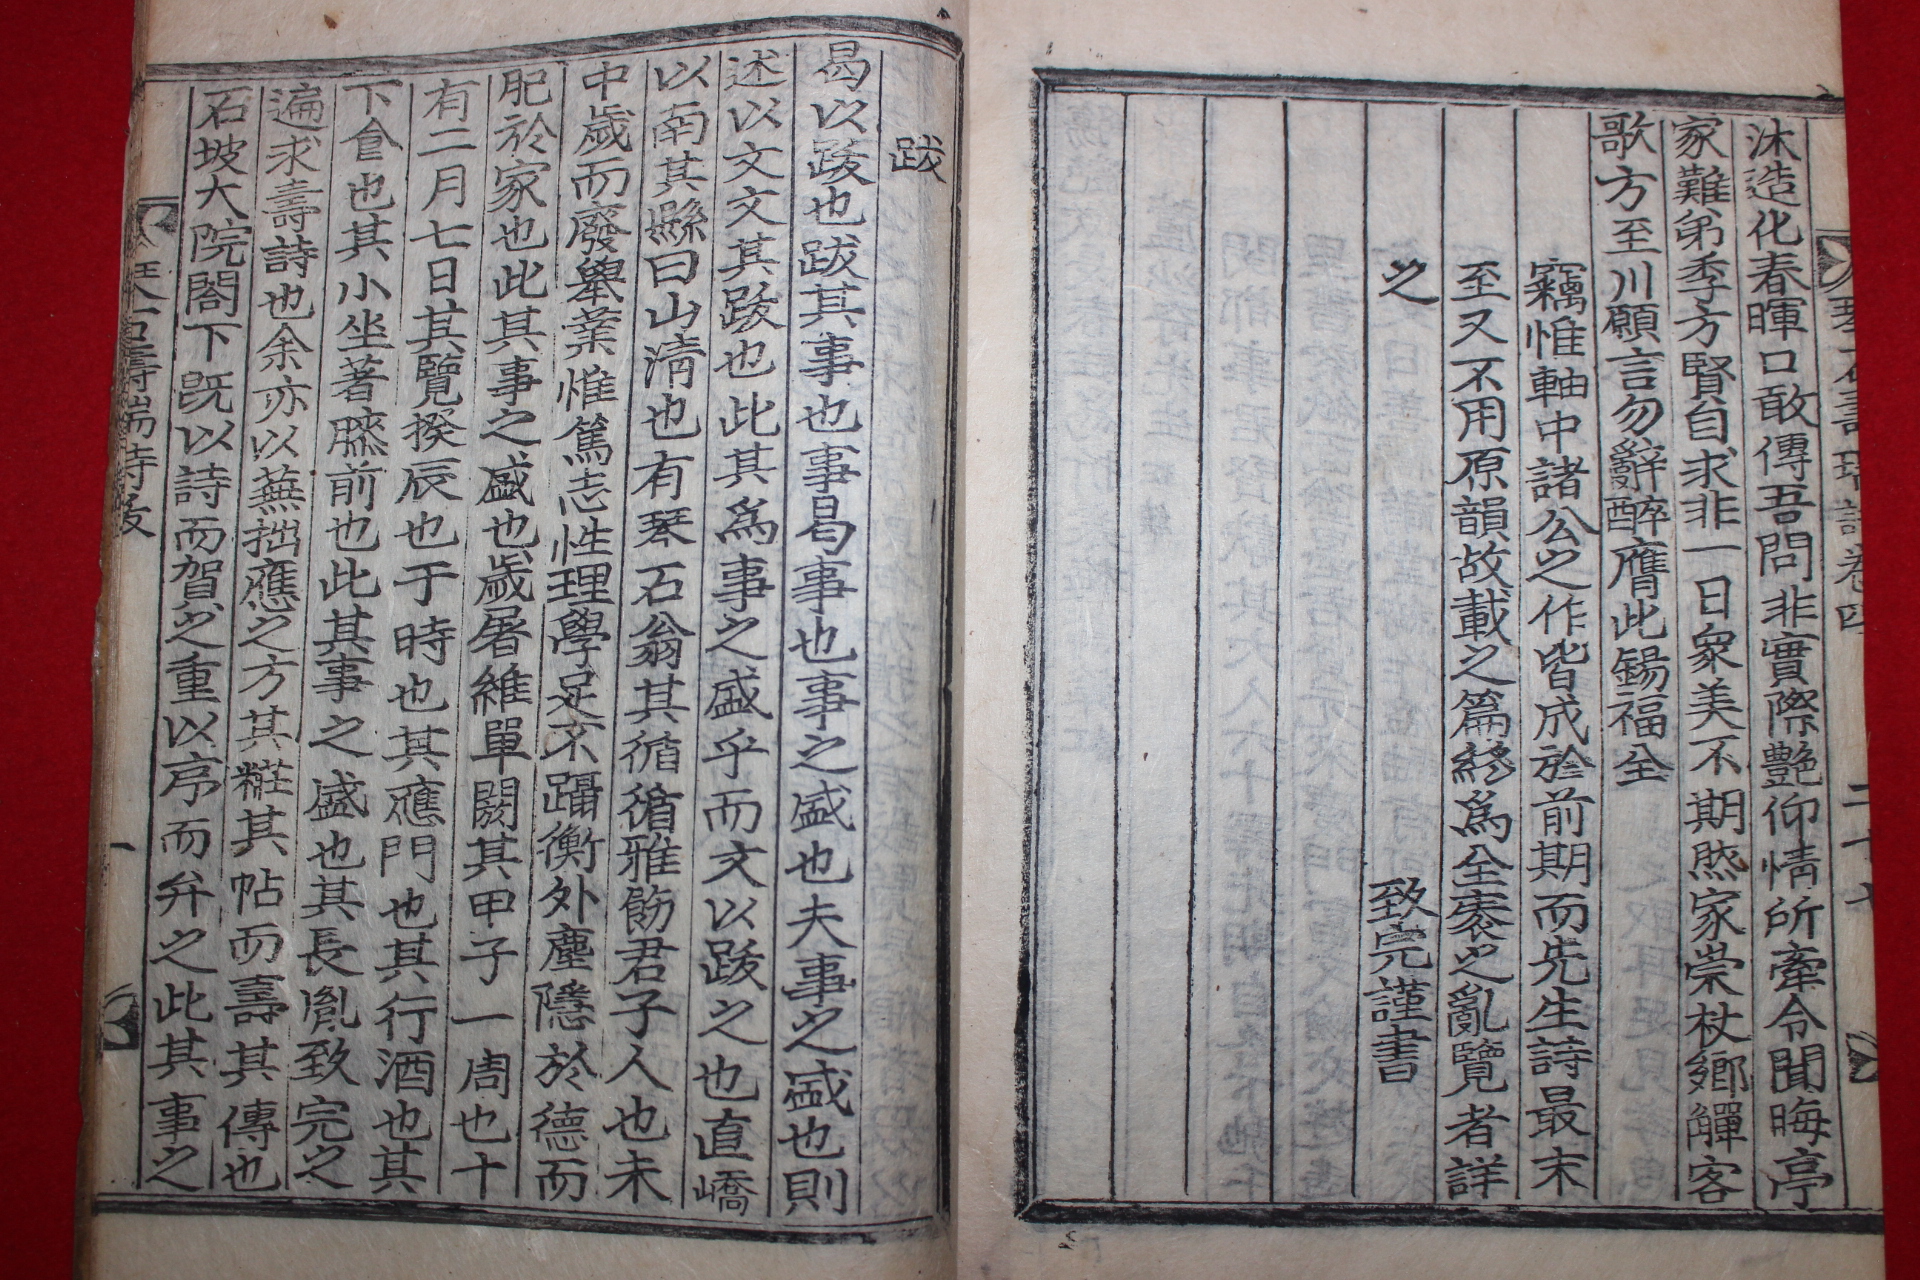 沐造化春暉口敢傳吾問非實際艷仰情所牽令聞晦亭
家難弟季方賢自求非一日衆美不期然家榮杖鄉觶客
歌方至川願言勿辭醉膺此錫福全
竊惟軸中諸公之作皆成於前期而先生詩最末
至又不用原韻故載之篇終爲全袠之亂覽者詳
之
致完謹書
跋
曷以跋也跋其事也事曷事也事之盛也夫事之盛也則
述以文文其跋也此其爲事之盛乎而文以跋之也直嶠
以南其縣曰山淸也有琴石翁其循循雅飭君子人也未
中歲而廢擧業惟篤志性理學足不躡衡外塵隱於德而
肥於家也此其事之盛也歲屠維單閼其甲子一周也十
有二月七日其覽揆辰也于時也其應門也其行酒也其
下食也其小坐著膝前也此其事之盛也其長胤致完之
遍求壽詩也余亦以蕪拙應之方其糚其帖而壽其傳也
石坡大院閤下旣以詩而賀之重以序而弁之此其事之